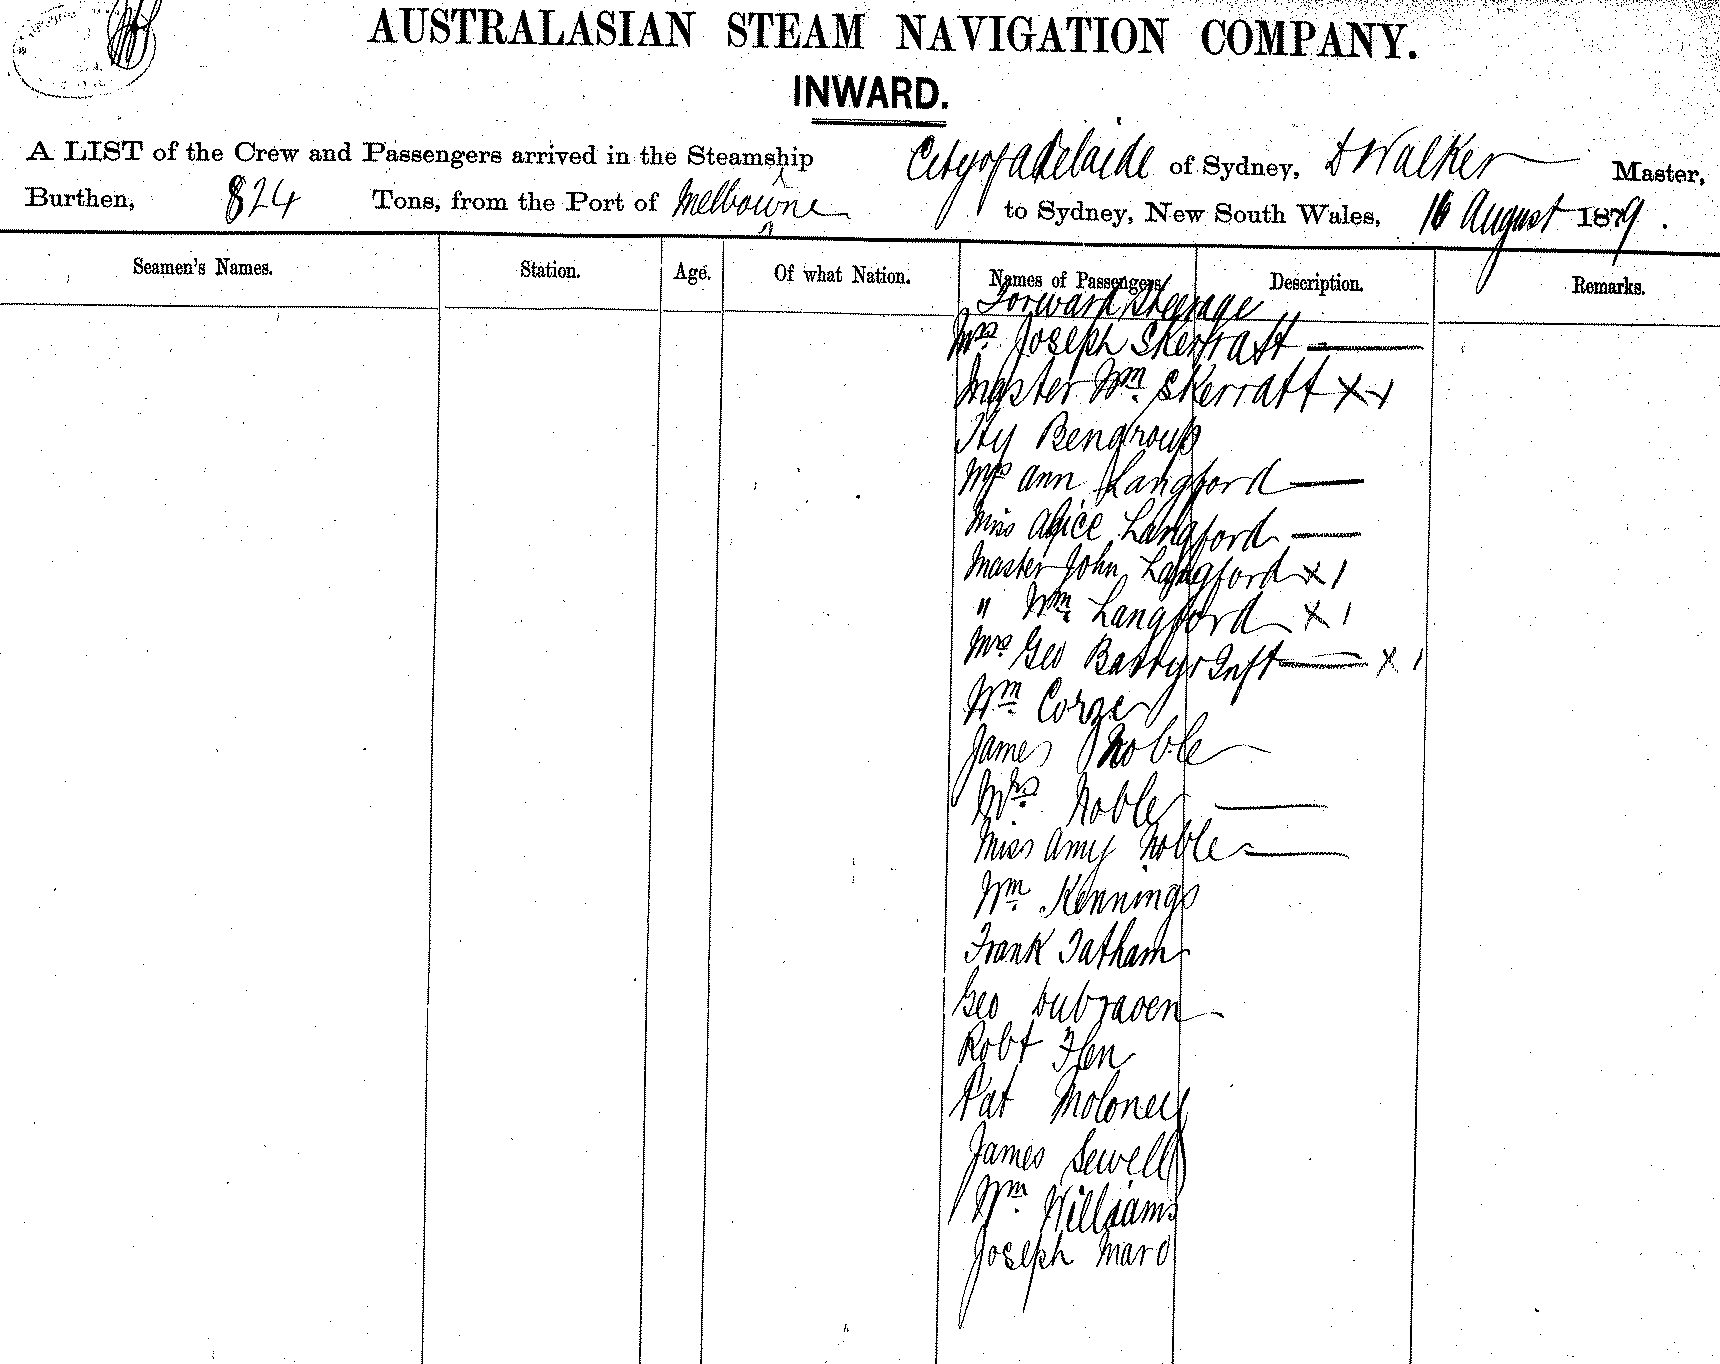 AUSTRALASIAN STEAM NAVIGATION COMPANY.
INWARD.
A LIST of the Crew and Passengers arrived in the Steamship City of Adelaide of Sydney, D Walker Master,
Burthen, 824 Tons, from the Port of Melbourne to Sydney, New South Wales, 16 August 1879.
Seamen's Names. Station. Age. Of what Nation. Names of Passengers Description. Remarks.
Forward Steerage
Mrs Joseph Skerratt
Master Wm Skerratt X 1
Hy Bengroup
Mrs Ann Langford
Miss Alice Langford
Master John Langford X 1
" Wm Langford X 1
Mrs Geo Inft X 1
Wm
James Noble
Mrs Noble
Miss Amy Noble
Wm Kennings
Frank Tatham
Geo
Robt
Pat Moloney
James Sewell
Wm Williams
Joseph